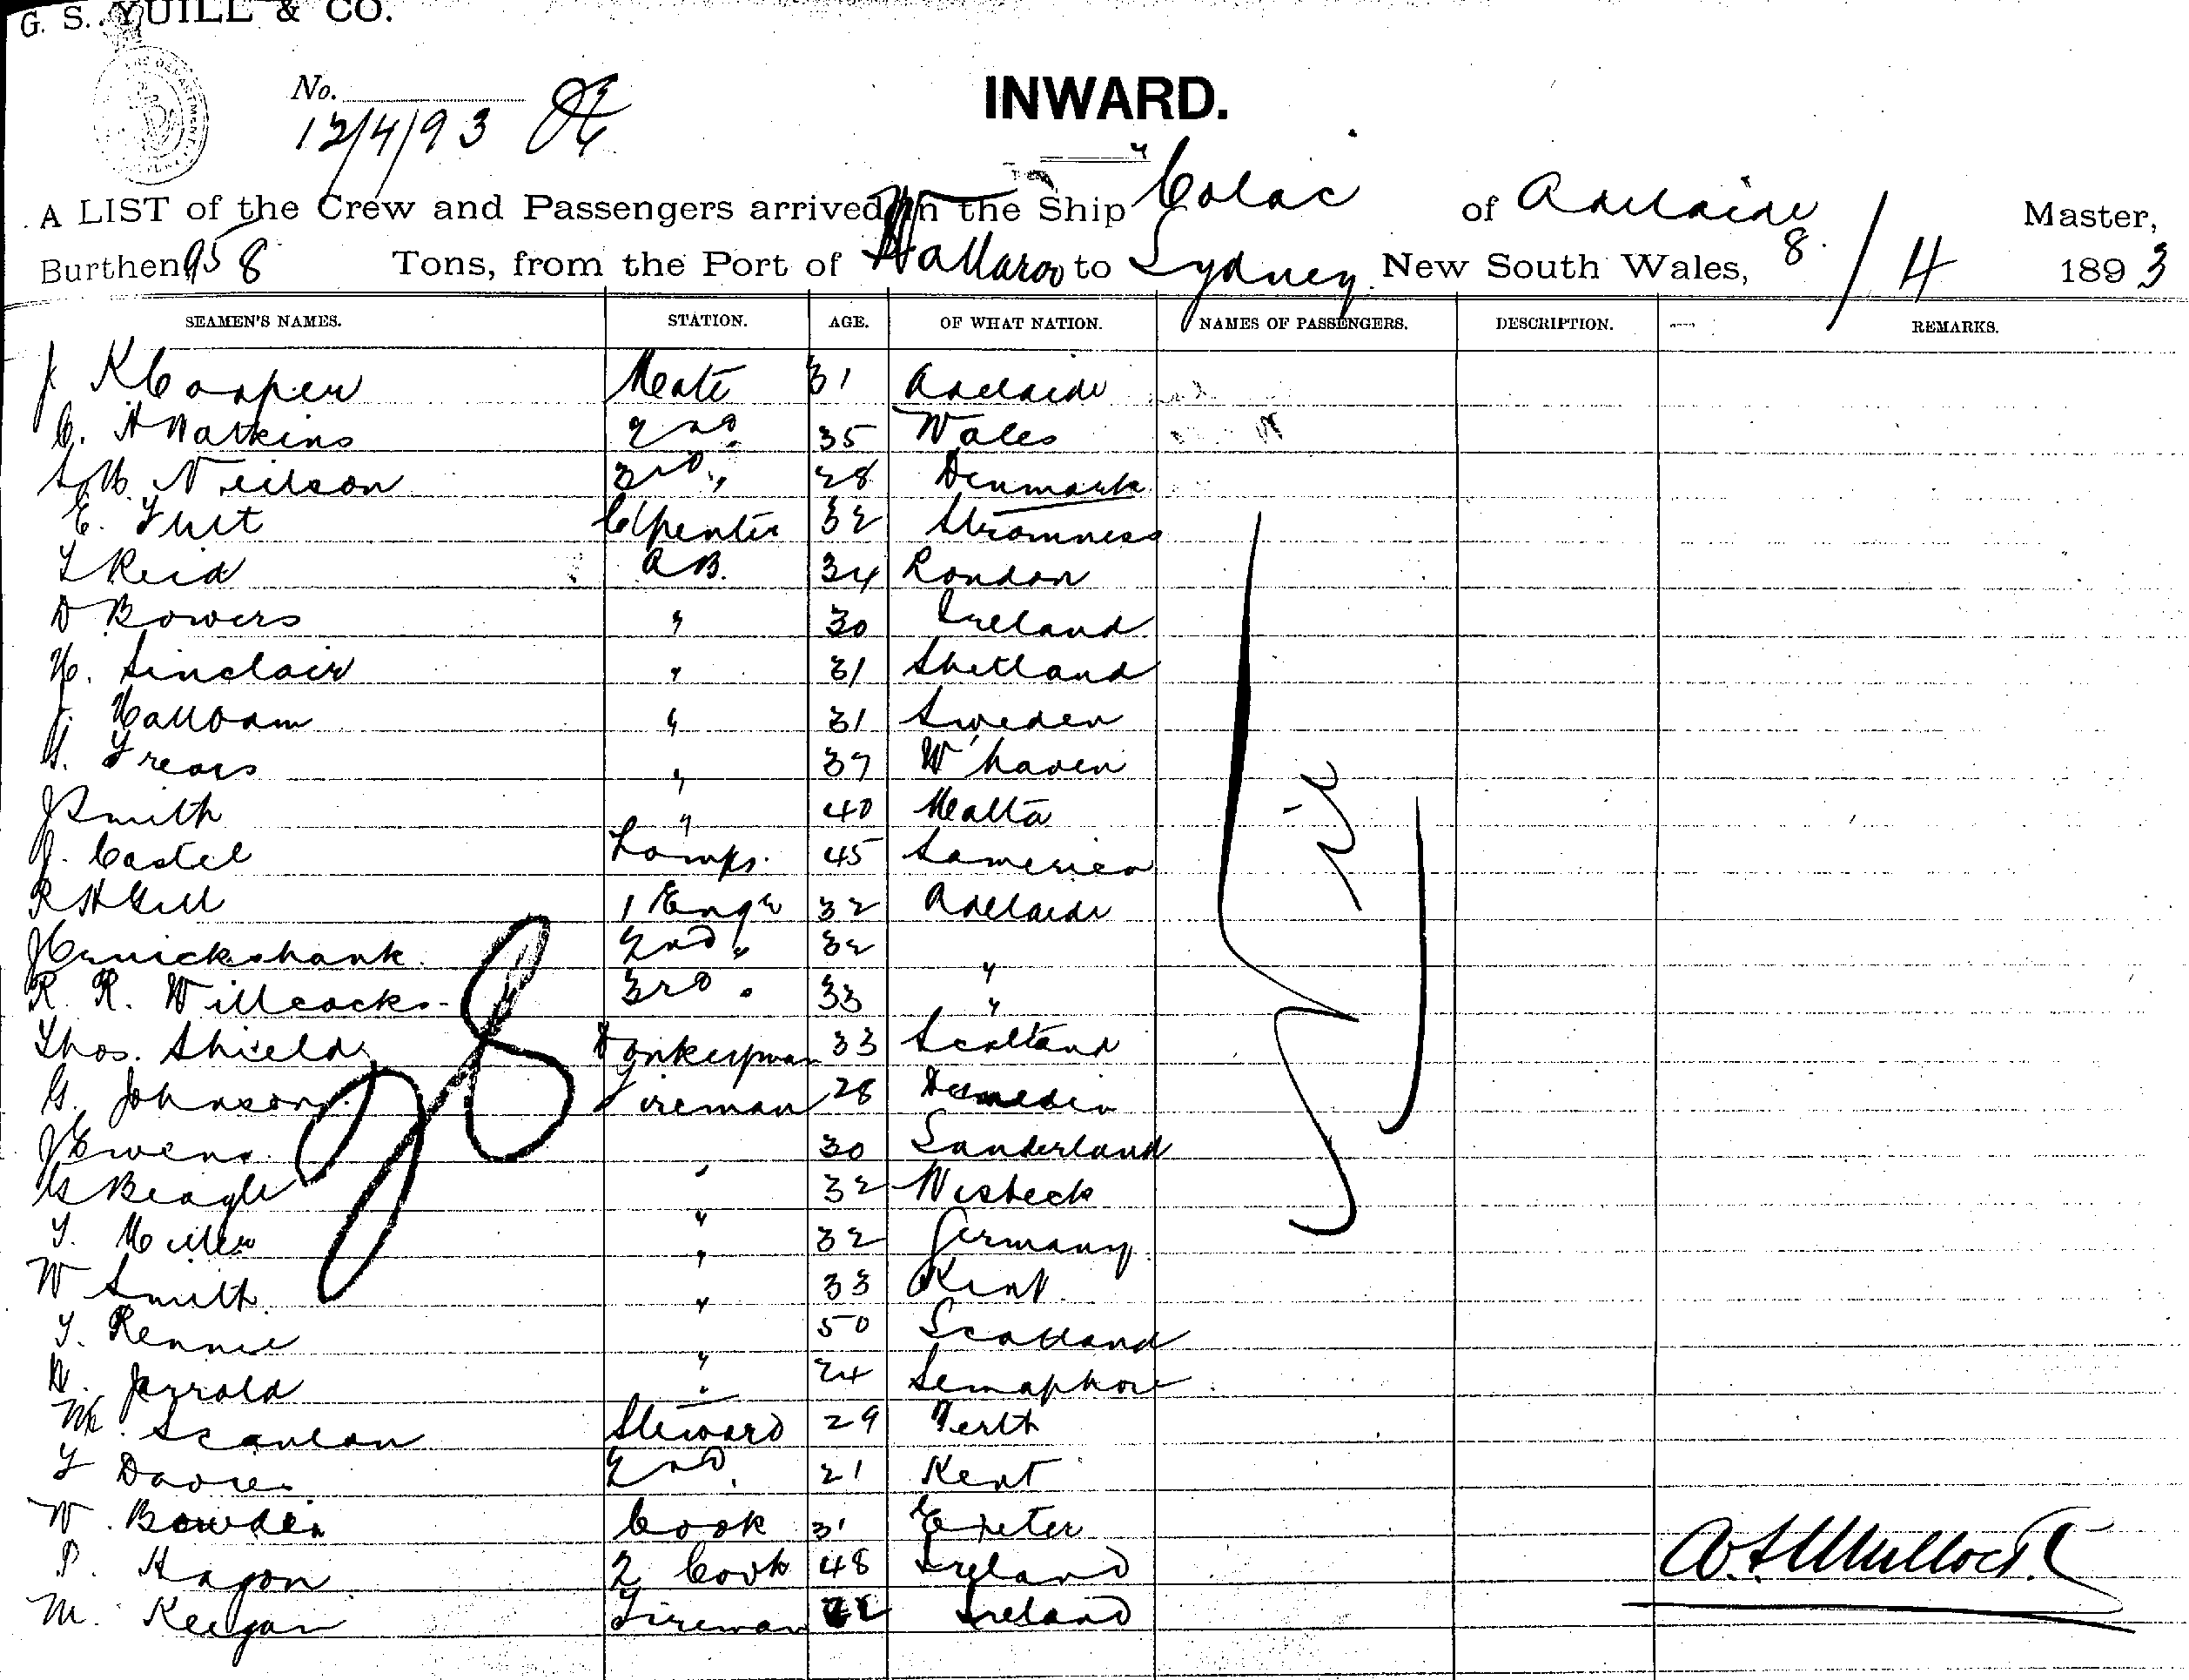 G. S. YUILL & CO.
No.
12/4/93
INWARD.
A LIST of the Crew and Passengers arrived in the Ship Colac of Adelaide Master,
Burthen 958 Tons, from the Port of Wallaroo to Sydney New South Wales, 8/4 1893
SEAMEN'S NAMES. STATION. AGE. OF WHAT NATION. NAMES OF PASSENGERS. DESCRIPTION. REMARKS.
J K Cooper Mate 31 Adelaide
C. H Watkins 2nd 35 Wales
Neilson 3rd " 28 Denmark
E. Flett C/penter 32 Stromness
T Reid A B. 34 London
D Bowers " 30 Ireland
H. Sinclair " 31 Shetland
J. " 31 Sweden
G. Frears " 37 W'haven
J Smith " 40 Malta
J. Castel Lamps. 45 S america
R H Gill 1 Engr 32 Adelaide
J Cruickshank 2nd " 32 "
R. R. Willcocks 3rd " 33 "
Thos. Shields Donkeyman 33 Scotland
G. Johnson Fireman 28 Dunedin
J Ewens " 30 Sunderland
G Beagle " 32 Wisbeck
T. Miller " 32 Germany
W Smith " 33 Kent
T. Rennie " 50 Scotland
H. Jarrold " 24 Semaphore
M. Scanlan Steward 29 Perth
T Davies 2nd 21 Kent
W. Bowden Cook 31 Exeter
P. Hagon 2 Cook 48 Ireland
M. Keegan Fireman Ireland
Nil